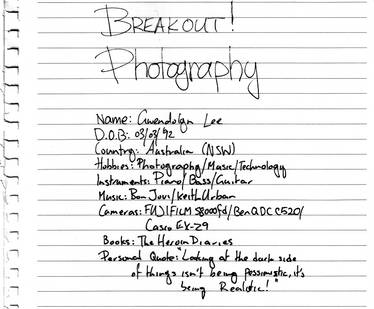 BREAKOUT!
Photography
Name: Gwendolyn Lee
D.O.B: 03/03/92
Country: Australia (NSW)
Hobbies: Photography/Music/Technology
Instruments: Piano/Bass/Guitar
Music: Bon Jovi/Keith Urban
Cameras: FUJIFILM S8000fd/BenQ DC C520/
Casio EX-Z9
Books: The Heroin Diaries
Personal Quote: "Looking at the dark side
of things isn't being pessimistic, it's
being Realistic!"